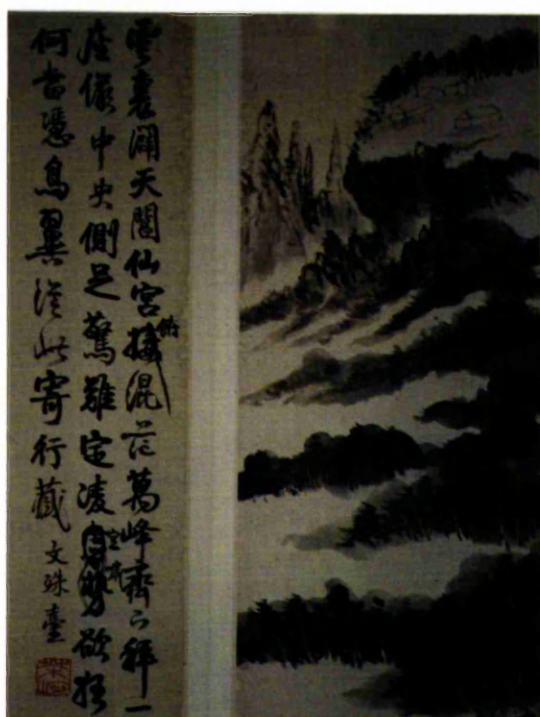 雲裏開天閶仙宮接俯混茫萬峰齊下拜一
座儼中央側足驚難定凌空勢欲狂
何當憑鳥翼從此寄行藏
文殊臺